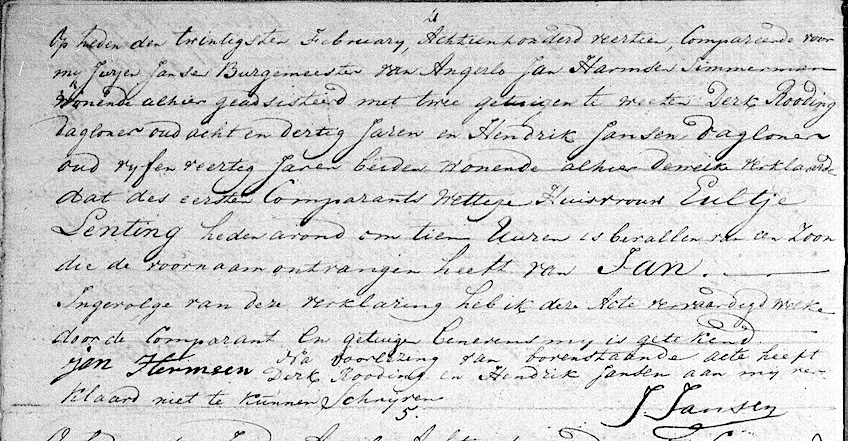 4
Op heden den twintigsten February, Achtienhonderd veertien, Compareerde voor
my Jurjen Jansen Burgemeester van Angerlo Jan Harmsen Timmerman
wonende alhier geadsisteerd met twee getuigen te weeten Derk Rooding
dagloner oud acht en dertig Jaren en Hendrik Jansen dagloner
oud vyf en veertig Jaren beiden wonende alhier dewelke verklaarde
dat des eersten Comparants Wettege Huisvrouw Eultje
Lenting heden avond om tien Uuren is bevallen van een Zoon
die de voornaam ontvangen heeft van Jan.
Ingevolge van deze verklaring heb ik deze Acte vervaardigd welke
door de Comparant En getuige Benevens my is getekend
Jan Hermsen Na voorlezing van bovenstaande acte heeft
Derk Rooding en Hendrik Jansen aan my ver-
klaard niet te kunnen Schryven
J Jansen
5.